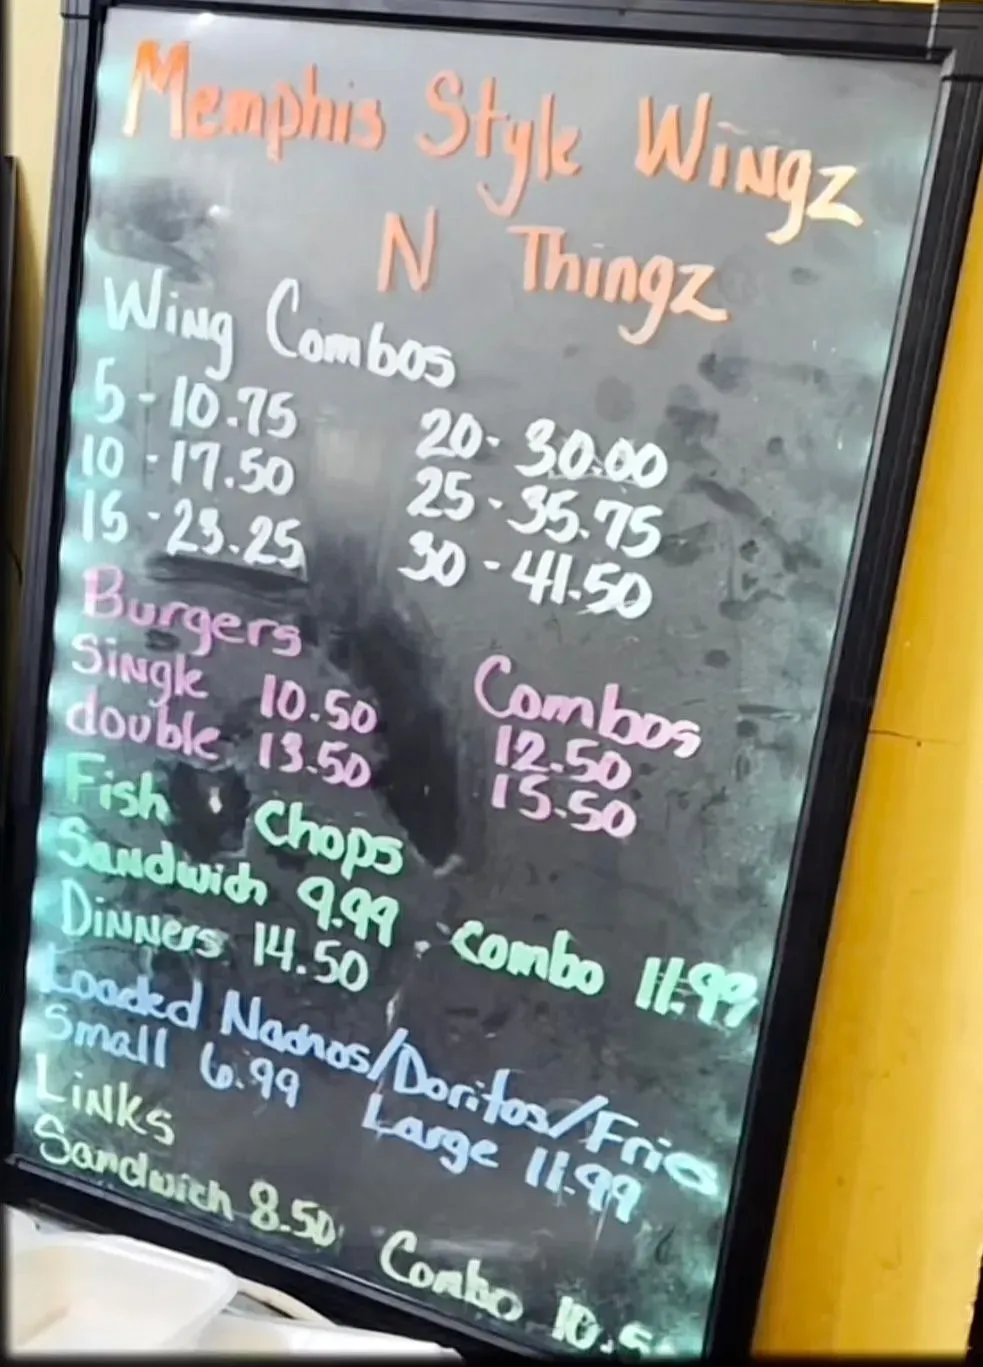 Memphis Style Wingz
N Thingz
Wing Combos
5 - 10.75 20 - 30.00
10 - 17.50 25 - 35.75
15 - 23.25 30 - 41.50
Burgers Combos
Single 10.50 12.50
double 13.50 15.50
Fish Chops
Sandwich 9.99 combo 11.99
Dinners 14.50
Loaded Nachos/Doritos/Fries
Small 6.99 Large 11.99
Links
Sandwich 8.50 Combo